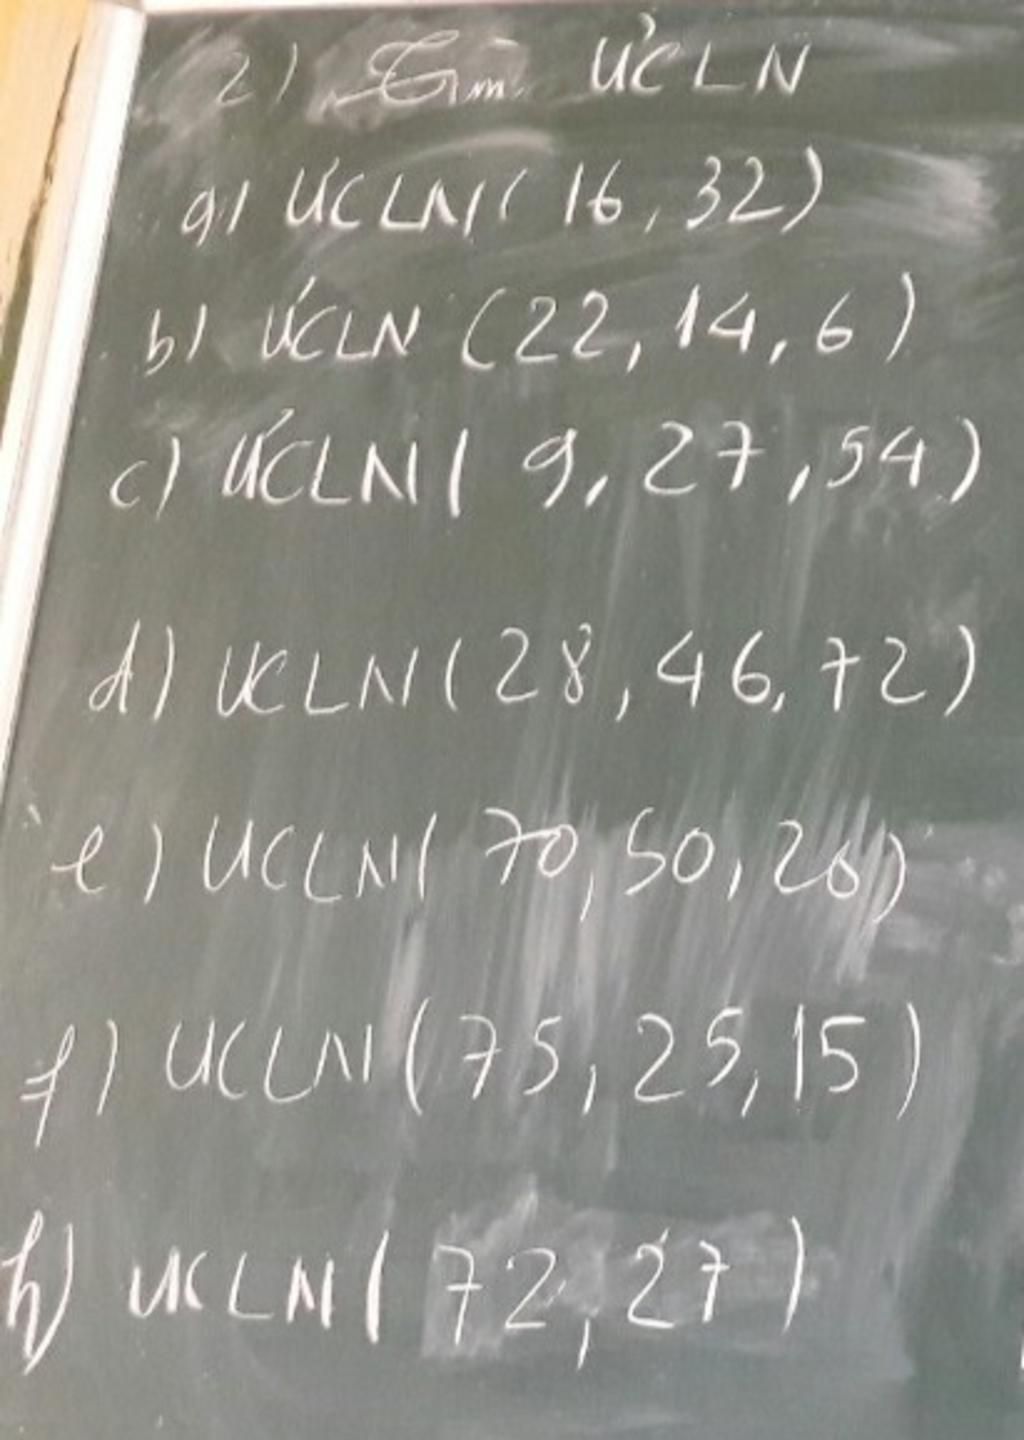 2) Tìm ƯCLN
a) ƯCLN( 16, 32)
b) ƯCLN (22, 14, 6)
c) ƯCLN( 9, 27, 54)
d) UCLN(28, 46, 72)
e) UCLN( 70, 50, 20)
f) UCLN(75, 25, 15)
h) UCLN( 72, 27)